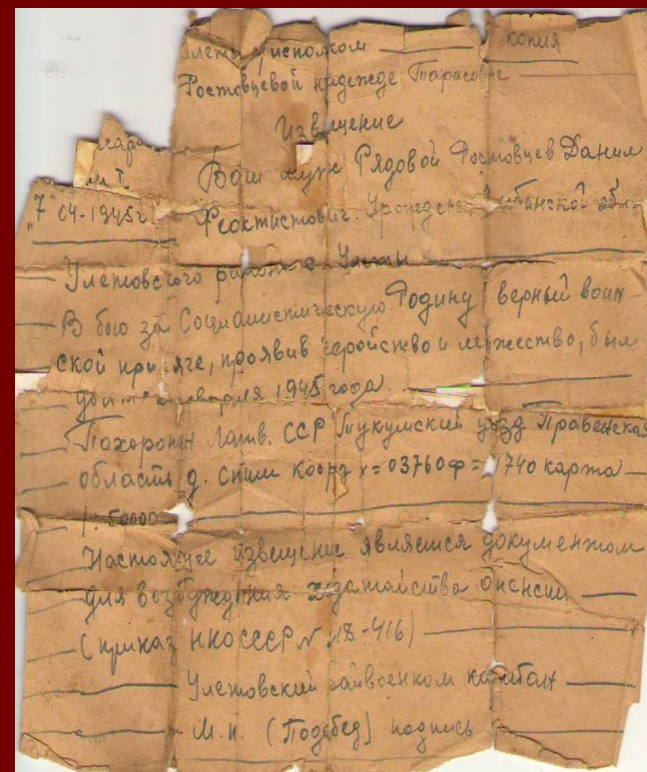 копия
Ростовцевой Надежде Тарасовне
Извещение
Ваш муж Рядовой Ростовцев Данил
"7" 04-1945г. Феоктистович. Урожден Читинской обл.
Улетовского района с. Улеты
В бою за Социалистическую Родину верный воин-
ской присяге, проявив геройство и мужество, был
1945 года.
Похоронен Латв. ССР Тукумский уезд
область д. коорд х = 03760 = 1740 карта
1:50000
Настоящее извещение является документом
для возбуждения хадатайства о пенсии
(приказ НКО СССР № -416)
Улетовский райвоенком капитан
М.п. (Подобед) подпись